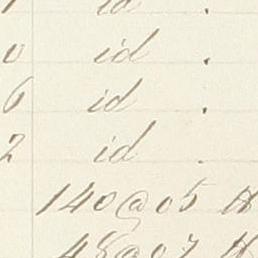 id .
0 id .
6 id .
2 id .
140@05 H
48@07 H